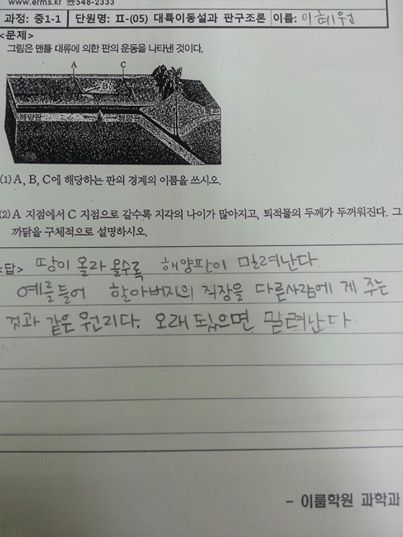 www.erms.kr ☎548-2333
과정: 중1-1 단원명: Ⅱ-(05) 대륙이동설과 판구조론 이름: 이혜원
<문제>
그림은 맨틀 대류에 의한 판의 운동을 나타낸 것이다.
A B C
해양판 해양판
(1) A, B, C에 해당하는 판의 경계의 이름을 쓰시오.
(2) A 지점에서 C 지점으로 갈수록 지각의 나이가 많아지고, 퇴적물의 두께가 두꺼워진다. 그
까닭을 구체적으로 설명하시오.
<답> 땅이 올라 올수록 해양판이 밀려난다
예를들어 할아버지의 직장을 다른사람에 게 주는
것과 같은 원리다. 오래 되있으면 밀려난다.
- 이룸학원 과학과